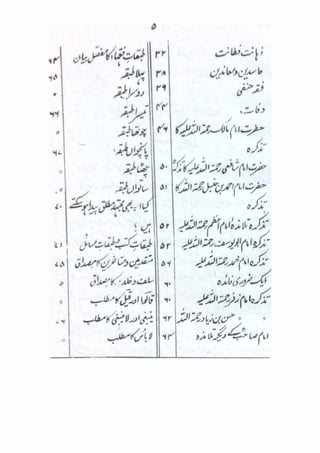 ۵
ذہانت فطانت ۳۲
حاسدین و معاندین ۳۸
فقہ حنفی ۳۹
وفات ۴۴
حضرت امام مالک رحمۃ اللہ علیہ کا ۴۶
تذکرہ
حضرت امام شافعی رحمۃ اللہ علیہ کا تذکرہ ۵۰
حضرت امام احمد بن حنبل رحمۃ اللہ کا ۵۱
تذکرہ
تذکرہ تلامذہ امام اعظم رحمۃ اللہ علیہ ۵۲
تذکرہ امام ابو یوسف رحمۃ اللہ علیہ ۵۲
تذکرہ امام محمد رحمۃ اللہ علیہ ۵۶
ایک ضروری فائدہ
تذکرہ امام زفر رحمۃ اللہ علیہ ۶۰
〃 حسن بن زیاد رحمۃ اللہ ۶۲
امام صاحب کے دیگر تلامذہ ۶۳
طبقات فقہاء کا مفصل بیان ۶۴
پہلا طبقہ ۶۵
دوسرا طبقہ 〃
تیسرا طبقہ ۶۶
چوتھا طبقہ 〃
پانچواں طبقہ ۶۷
چھٹا طبقہ 〃
ساتواں طبقہ 〃
کیا اب بھی مجتہد مطلق پیدا ہو سکتے ۷۰
ہیں؟
طبقات کتب و طبقات مسائل ۷۱
متقدمین و متاخرین کا مصداق ۷۵
سلف و خلف کا مصداق 〃
قالوا اور قیل کا مطلب
ینبغی اور لا ینبغی کا مطلب
لا بأس کا مطلب